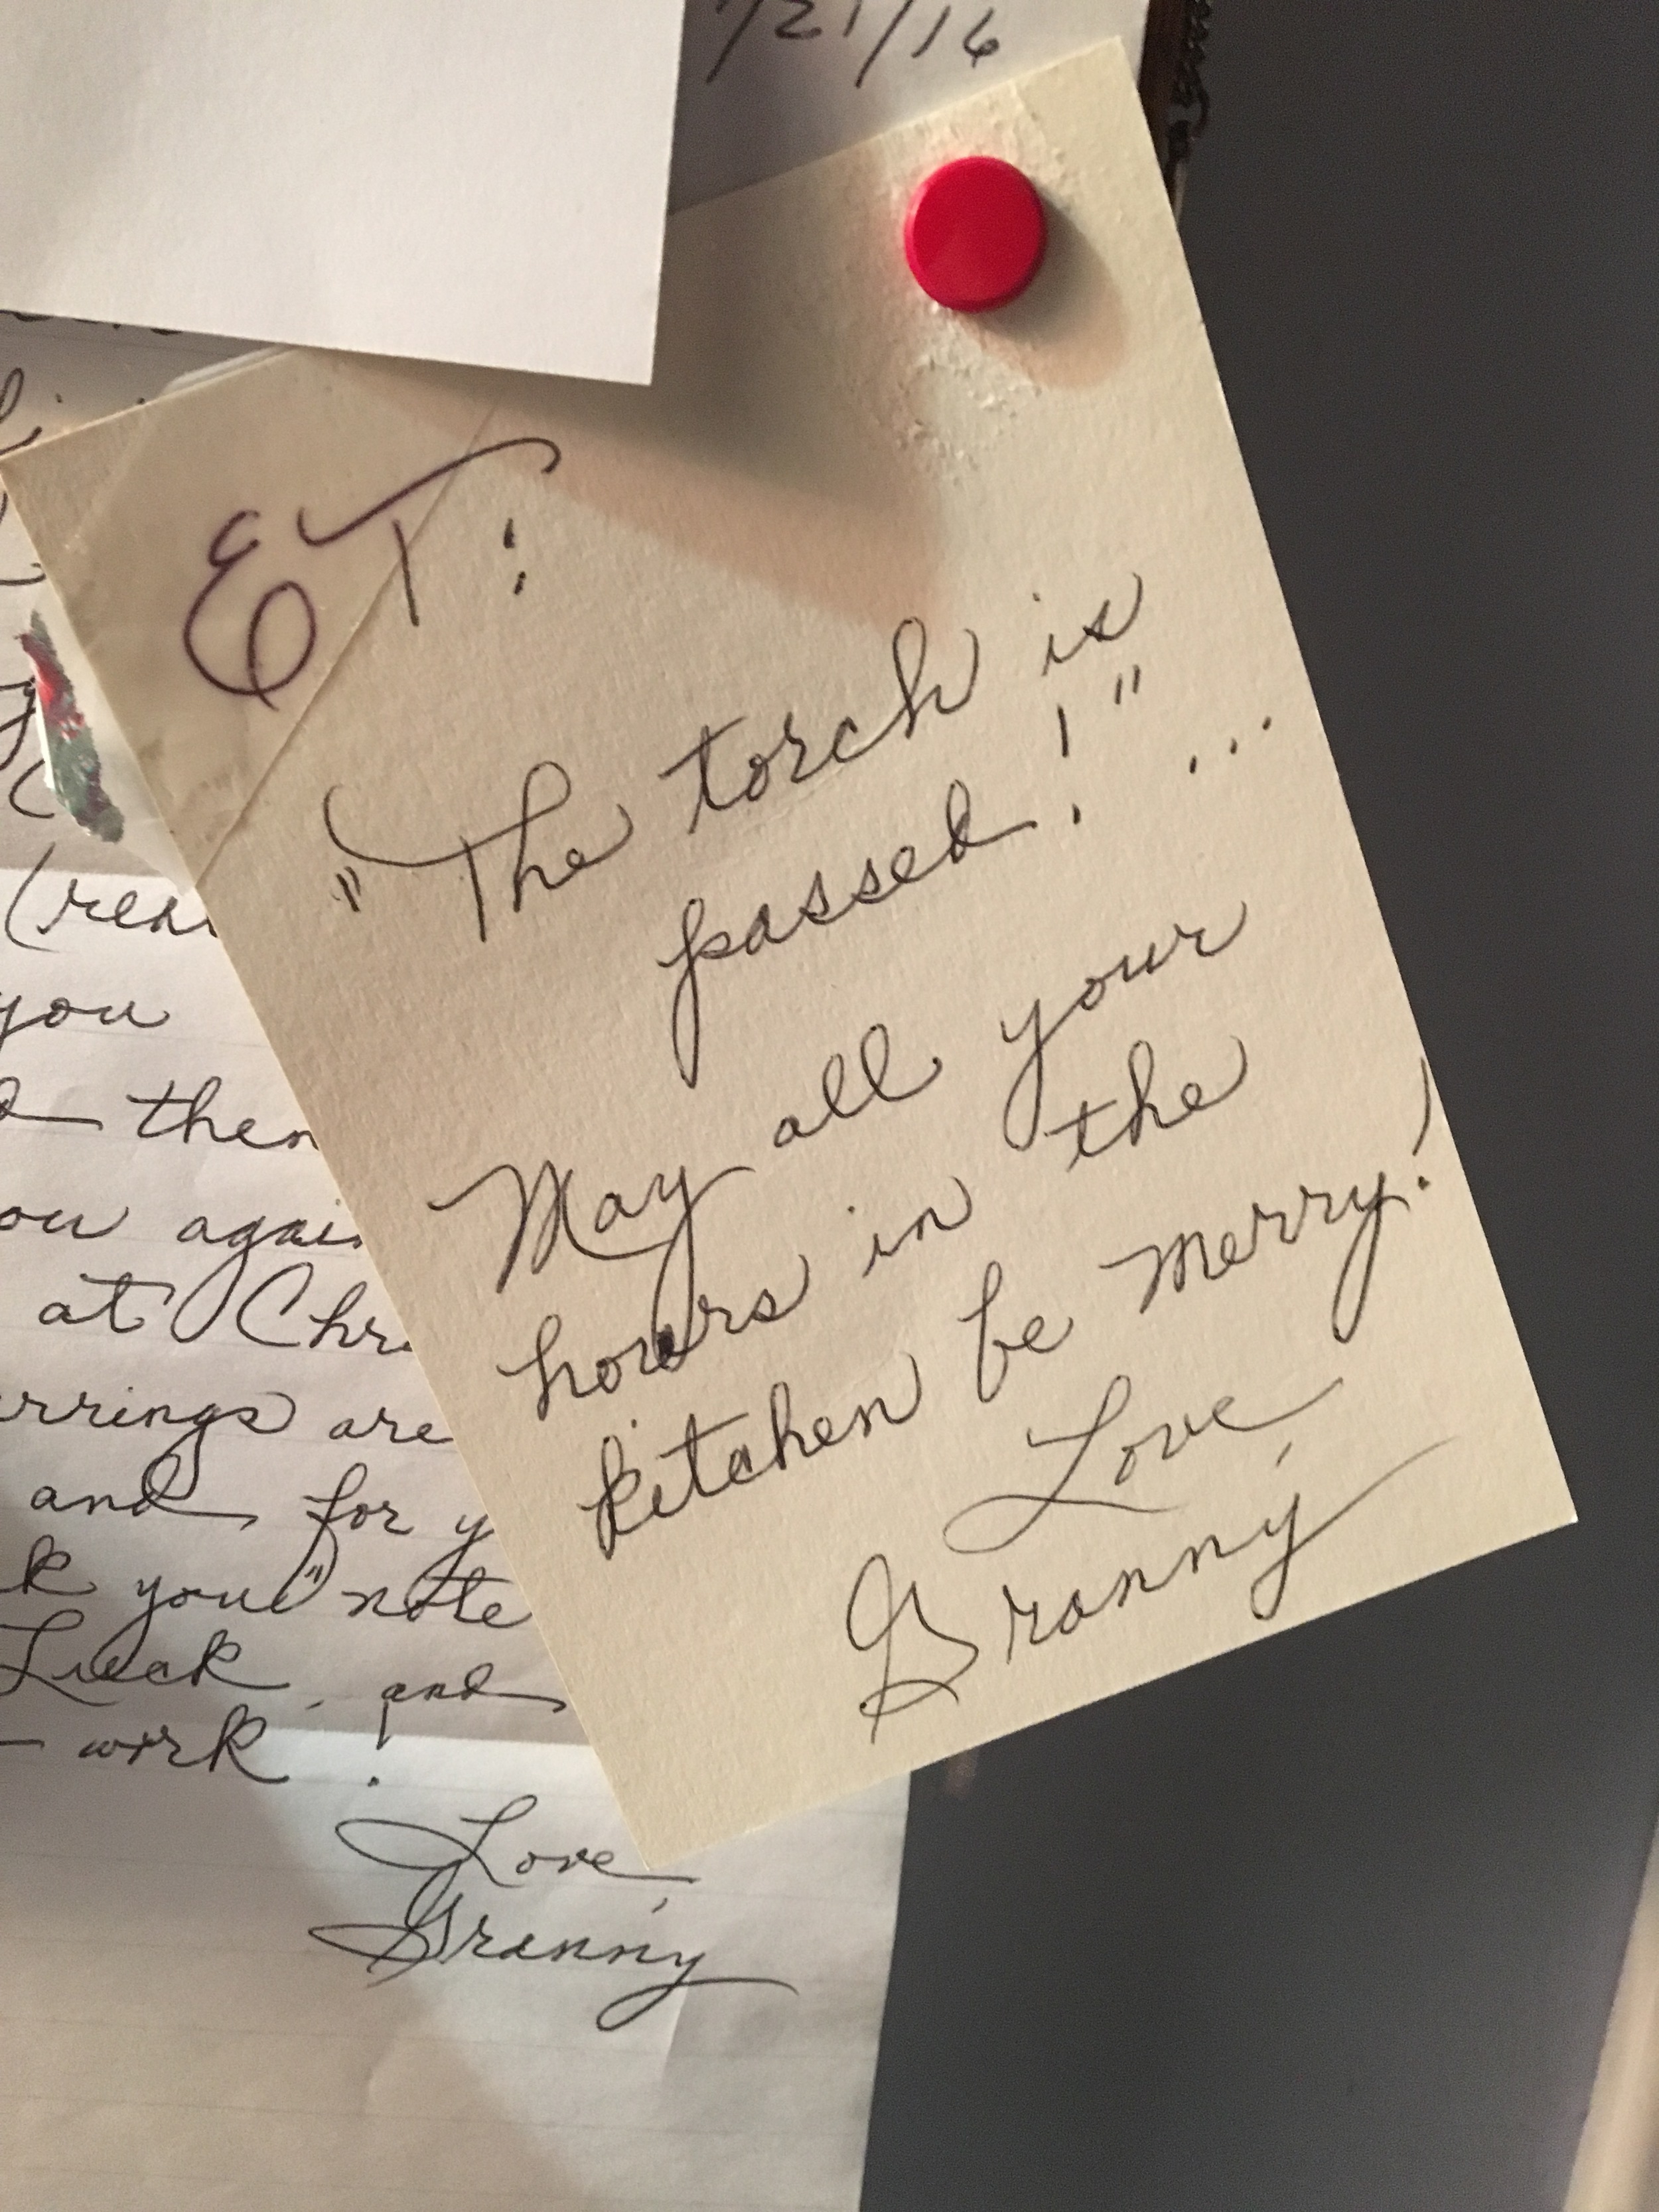 /21/16
ET:
"The torch is
passed!" ...
May all your
hours in the
kitchen be merry!
Love,
Granny
you
then
you again
at Chr
are
and for y
you" note
Luck and
work!
Love,
Granny